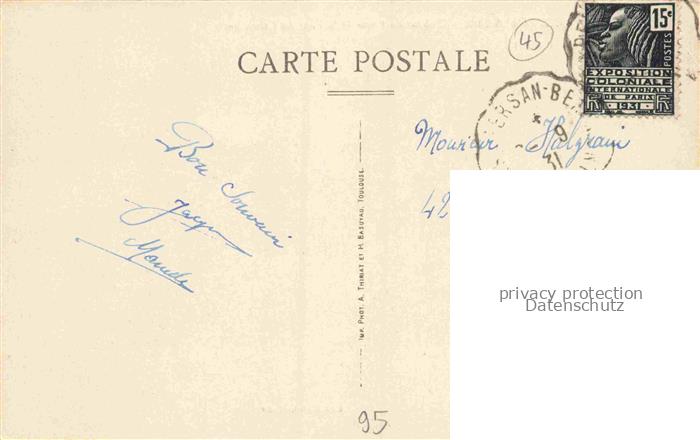 45
15c
POSTES
EXPOSITION
COLONIALE
INTERNATIONALE
DE PARIS
1931
CARTE POSTALE
PERSAN-BEA
* 9
31
Monsieur Halgrain
42
Bon Souvenir
Jacques
IMP. PHOT. A. THIRIAT ET H. BASUYAU, TOULOUSE.
privacy protection
Datenschutz
95